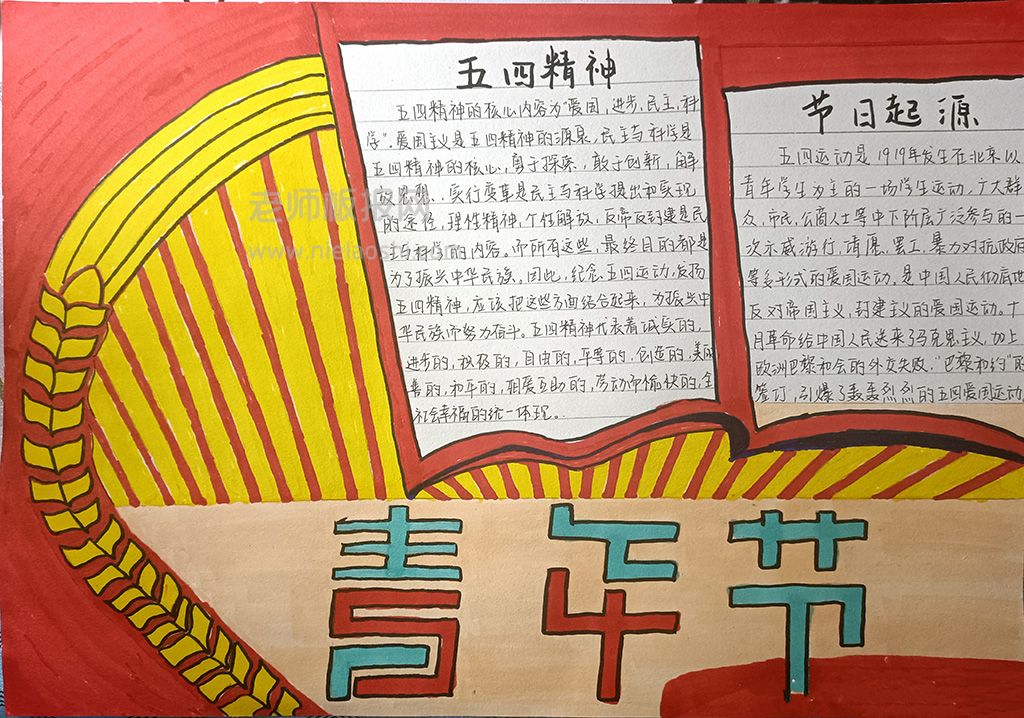 五四精神
五四精神的核心内容为"爱国,进步,民主,科
学",爱国主义是五四精神的源泉,民主与科学是
五四精神的核心,勇于探索,敢于创新,解
放思想,实行变革是民主与科学提出和实现
的途径,理性精神,个性解放,反帝反封建是民
主与科学的内容。而所有这些,最终目的都是
为了振兴中华民族。因此,纪念五四运动,发扬
五四精神,应该把这些方面结合起来,为振兴中
华民族而努力奋斗。五四精神代表着诚实的,
进步的,积极的,自由的,平等的,创造的,美的
善的,和平的,相爱互助的,劳动而愉快的,全
社会幸福的统一体现。
节日起源
五四运动是1919年发生在北京以
青年学生为主的一场学生运动,广大群
众,市民,公商人士等中下阶层广泛参与的一
次示威游行,请愿,罢工,暴力对抗政府
等多形式的爱国运动。是中国人民彻底地
反对帝国主义,封建主义的爱国运动。十
月革命给中国人民送来了马克思主义,加上
欧洲巴黎和会的外交失败,"巴黎和约"的
签订,引爆了轰轰烈烈的五四爱国运动
老师板报网
青年节